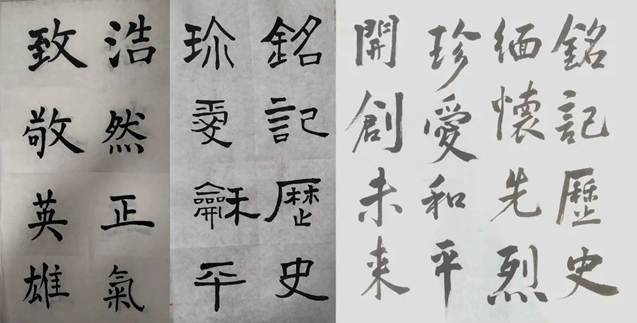 浩然正氣
致敬英雄
銘記歷史
珎愛龢平
銘記歷史
緬懷先烈
珍愛和平
開創未来